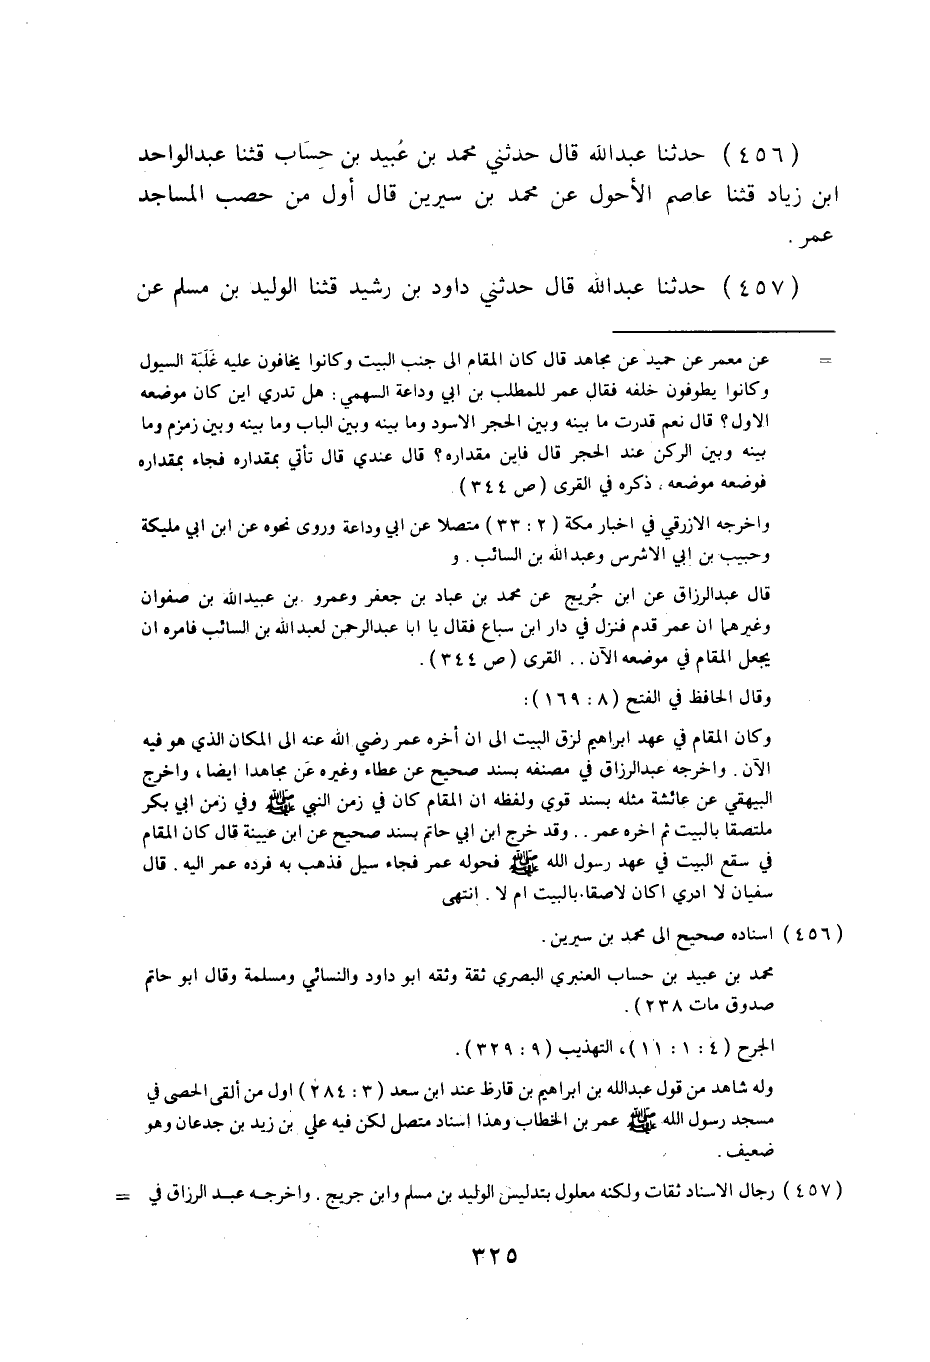 (٤٥٦) حدثنا عبدالله قال حدثني محمد بن عُبيد بن حِسَاب قثنا عبدالواحد
ابن زياد قثنا عاصم الأحول عن محمد بن سيرين قال أول من حصب المساجد
عمر .
(٤٥٧) حدثنا عبدالله قال حدثني داود بن رشيد قثنا الوليد بن مسلم عن
= عن معمر عن حميد عن مجاهد قال كان المقام الى جنب البيت وكانوا يخافون عليه غَلَبَة السيول
وكانوا يطوفون خلفه فقال عمر للمطلب بن ابي وداعة السهمي : هل تدري اين كان موضعه
الاول؟ قال نعم قدرت ما بينه وبين الحجر الاسود وما بينه وبين الباب وما بينه وبين زمزم وما
بينه وبين الركن عند الحجر قال فاين مقداره؟ قال عندي قال تأتي بمقداره فجاء بمقداره
فوضعه موضعه ، ذكره في القرى (ص ٣٤٤) .
واخرجه الازرقي في اخبار مكة (٢ : ٣٣) متصلا عن ابي وداعة وروى نحوه عن ابن ابي مليكة
وحبيب بن ابي الاشرس وعبدالله بن السائب . و
قال عبدالرزاق عن ابن جُريج عن محمد بن عباد بن جعفر وعمرو بن عبيدالله بن صفوان
وغيرهما ان عمر قدم فنزل في دار ابن سباع فقال يا ابا عبدالرحمن لعبدالله بن السائب فامره ان
يجعل المقام في موضعه الآن . . القرى (ص ٣٤٤) .
وقال الحافظ في الفتح (٨ : ١٦٩) :
وكان المقام في عهد ابراهيم لزق البيت الى ان أخره عمر رضي الله عنه الى المكان الذي هو فيه
الآن . واخرجه عبدالرزاق في مصنفه بسند صحيح عن عطاء وغيره عَن مجاهدا ايضا ، واخرج
البيهقي عن عائشة مثله بسند قوي ولفظه ان المقام كان في زمن النبي ﷺ وفي زمن ابي بكر
ملتصقا بالبيت ثم اخره عمر . . وقد خرج ابن ابي حاتم بسند صحيح عن ابن عيينة قال كان المقام
في سقع البيت في عهد رسول الله ﷺ فحوله عمر فجاء سيل فذهب به فرده عمر اليه . قال
سفيان لا ادري اكان لاصقا بالبيت ام لا . انتهى
(٤٥٦) اسناده صحيح الى محمد بن سيرين .
محمد بن عبيد بن حساب العنبري البصري ثقة وثقه ابو داود والنسائي ومسلمة وقال ابو حاتم
صدوق مات ٢٣٨) .
الجرح (٤ : ١ : ١١) ، التهذيب (٩ : ٣٢٩) .
وله شاهد من قول عبدالله بن ابراهيم بن قارظ عند ابن سعد (٣ : ٢٨٤) اول من ألقى الحصى في
مسجد رسول الله ﷺ عمر بن الخطاب وهذا اسناد متصل لكن فيه علي بن زيد بن جدعان وهو
ضعيف .
(٤٥٧) رجال الاسناد ثقات ولكنه معلول بتدليس الوليد بن مسلم وابن جريج . واخرجه عبد الرزاق في =
٣٢٥